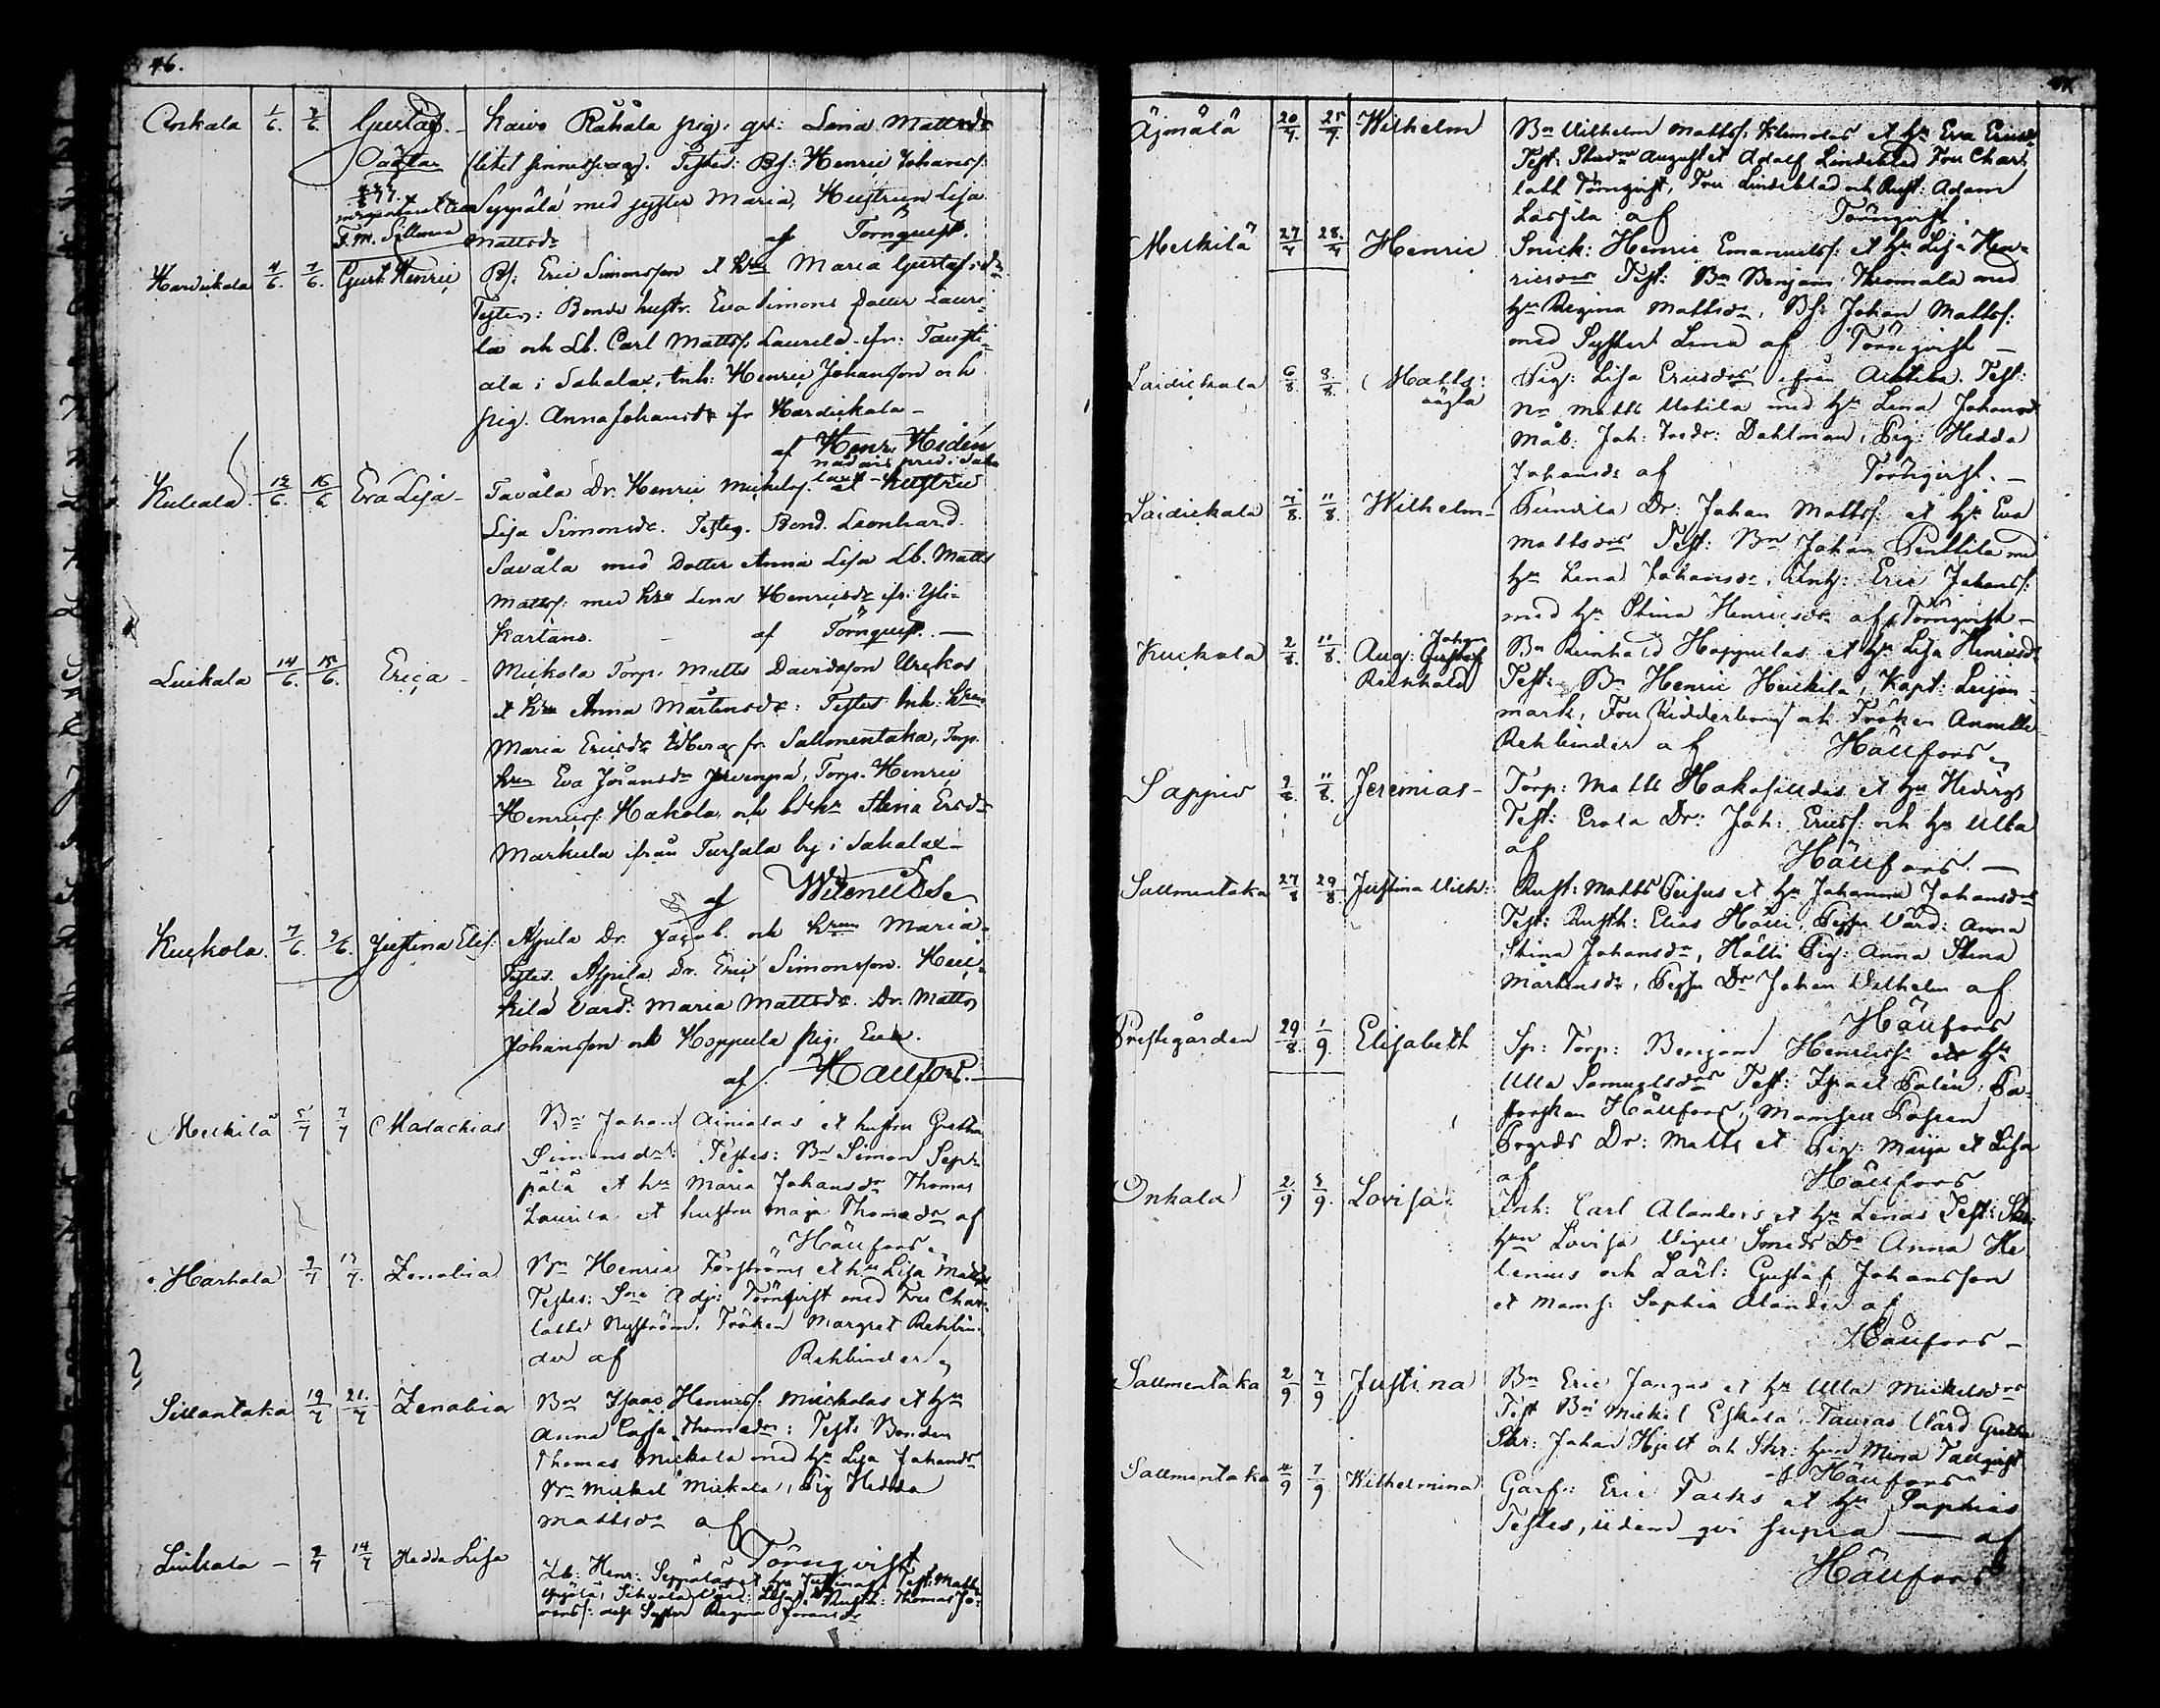 46.
Onkala 1/6. 3/6. Gustaf. Kaivo Råhåla pig. Lena Mattsdr
Oägta (litet sinnessvag). Testes: Bs: Henric Johanss:
Seppälä med syster Maria, Hustrun Lisa
F. M. Sillman Mattsdr af Törnquist.
Hardiekala 4/6. 7/6. Gust. Henric Bs: Eric Simonsson et Hru Maria Gustafsdr
Testes: Bonde hustr. Eva Simons dotter Lauri-
la och Lb. Carl Mattss: Laurila fr:
ala i Sahalax, Inh: Henric Johansson och
pig. Anna Johansdr fr Hardiekala -
af Henr. Hidén
Kuleala. 12/6. 16/6 Eva Lisa - Tavåla Dr. Henric Michels. et Hustru
Lisa Simonsdr. Testes. Bond. Leonhard
Savåla med Dotter Anna Lisa Lb. Matts
Mattss: med hru Lena Henricsdr fr: Yli-
Kartano. - af Törnquist. -
Luikala 14/6. 15/6. Erica - Mickola Torp. Matts Davidsson
et Hru Anna Mårtensdr: Testes Inh. hru
Maria Ericsdr Edberg fr Salmentaka, Torp.
hru Eva Johansdr Torp. Henric
Henricss: Hakola, och hru Stina Ersdr
Markula ifrån Tursala by i Sahalax -
af
Kuckola. 7/6. 9/6. Justina Elis: Aspila Dr. Jacob. och hrun Maria.
Testes. Aspila Dr. Eric Simonsson. Heic-
kilä Vard: Maria Mattsdr. Dr. Matts
Johansson och Hoppula pig: Eva.
af. Hällfors. -
Metkilä 5/7 7/7 Malachias Bn Johan Ainialas et hustru Gretha
Simonsdrs Testes: Bn Simon Sep-
pälä et hru Maria Johansdr Thomas
Laurila et hustru Maja Thomedr af
Hällfors.
Harhala 9/7 13/7. Zenobia Bn Henric Forströms et hru Lisa Matts
Testes: Adj: Törnqvist med Fru Char-
lotte Nyström, Fröken Margret Rehbin-
der af Rehbinder
Sillantaka 19/7 21./7 Zenobia Bn Isaac Henricss: Mickolas et hru
Anna Cajsa Thomedr: Test: Bonden
Thomas Mickola med hr Lisa Johansdr
Bn Mickel Mickola, Pig Hedda
Mattsdr af
Törnqvist
Luikala - 9/7 14/7 Hedda Lisa Lb: Henr: Seppäläs et hru Justinas Test: Matts
Seppälä, Rusth: Thomas Jo-
hanss: och Syster Regina Johansdr
Äjmälä 20/7. 25/7. Wilhelm Bn Vilhelm Mattss: Klemolas et hr Eva Ericsdr
Test: Studr August et Adolf Lindeblad Fru Char-
lott Törnqvist, Fru Lindeblad och Rust: Adam
Lassila af Törnqvist.
Metkilä 27/7 28./7 Henric Snick: Henric Emanuelss: et hr Lisa Hen-
ricsdrs Test: Bn Benjam Thromala med
hru Regina Mattsdr, Bs: Johan Mattss:
med Syster Lena af Törnqvist -
Laidiekala 6/8 8./8. Matts: Pig: Lisa Ericsdrs ifrån Anttila. Test:
oägta Bn Matts Uotila med hr Lena Johansd
Måb: Joh: Dahlman, Pig: Hedda
Johansdr af Törnqvist. -
Laidiekala 7/8. 11/8. Wilhelm - Pundila Dr: Johan Mattss: et hr Eva
Mattsdrs Test: Bn Johan Penttila med
hr Lena Johansdr, Inh: Eric Johanss:
med hr Stina Henricsdr af Törnqvist -
Kuckola 2/8. 11/8. Aug: Johan Bn Reinhold Hoppulas et hr Lisa Henricsdr
Reinhold Test: Bn Henric Heickilä, Kapt: Leijon-
mark, Fru Ridderborg och Fröken Annette
Rehbinder af Hällfors
Sappio 9/8. 11/8. Jeremias - Torp: Matts Hakasilldas et hru Hedvigs
Test: Erola Dr: Joh: Ericss: och hr Ulla
af Hällfors. -
Sallmentaka 27/8 29/8. Justina Vilh: Rust: Matts Peijus et hr Johanna Johansdrs
Test: Rusth: Elias Hälli, Värd: Anna
Stina Johansdr, Hälli Pig: Anna Stina
Mårtensdr, Dr Johan Wilhelm af
Hällfors
Prestegården 29/8. 1/9. Elisabeth Sp: Torp: Benjam Henricss: et hr
Ulla Samuelsdrs Test: Israel Palén, Pa-
storskan Hällfors, Mamsell
Prgrds Dr: Matts et Pig: Maija et Lisa
af Hällfors
Onkala 2/9 5/9. Lovisa. Inh: Carl Alanders et hr Lenas Test: Skr:
hru Lovisa Smeds Dr Anna He-
lenius och Gustaf Johansson
et Mams: Sophia Alander af
Hällfors -
Sallmentaka 2/9 7/9 Justina Bn Eric Jangas et hr Ulla Mickelsdrs
Test Bn Mickel Eskola Värd Gretha
Skr: Johan Hjelt och Skr: hru Mina Tallqvist
af Hällfors
Sallmentaka 4/9 7/9 Wilhelmina Garf:: Eric Falks et hr Sophias
Testes, iidem qvi supra - af
Hällfors